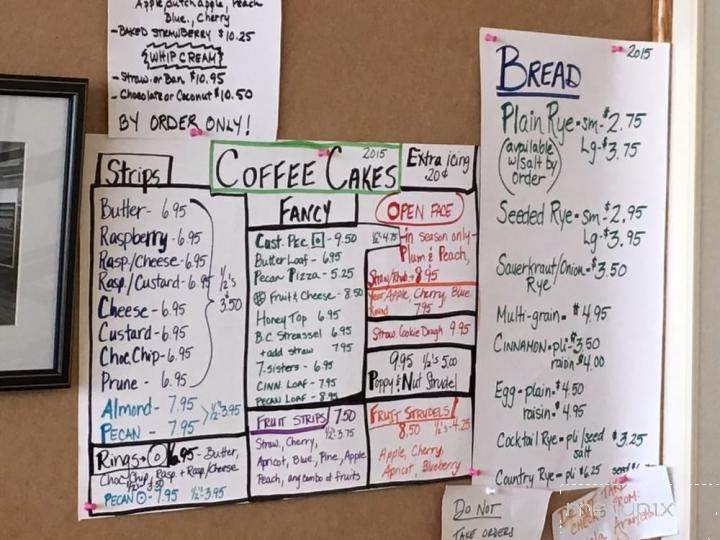 Apple, dutch apple, Peach
Blue., Cherry
- BAKED STRAWBERRY $10.25
WHIP CREAM
- Straw. or Ban. $10.95
- Chocolate or Coconut $10.50
BY ORDER ONLY!
COFFEE CAKES
2015
Extra icing
.20¢
Strips
Butter - 6.95
Raspberry - 6.95
Rasp./Cheese - 6.95
Rasp./Custard - 6.95
Cheese - 6.95
Custard - 6.95
Choc. Chip - 6.95
Prune - 6.95
½'s
3.50
Almond - 7.95
PECAN - 7.95
½ - 3.95
Rings - 6.95 - Butter,
Choc. Chip, Rasp. + Rasp/Cheese
½ - 3.50
PECAN - 7.95 ½ - 3.95
FANCY
Cust. Pec. - 9.50
½ - 4.75
Butter Loaf - 6.95
Pecan Pizza - 5.25
Fruit & Cheese - 8.50
Honey Top 6.95
B.C. Streussel 6.95
+ add straw 7.95
7-sisters - 6.95
CINN. LOAF - 7.95
PECAN LOAF - 8.95
FRUIT STRIPS 7.50
½ - 3.75
Straw, Cherry,
Apricot, Blue, Pine, Apple
Peach, any combo of fruits
OPEN FACE
- in season only -
Plum & Peach,
Straw/Rhub. - 8.95
Year Round
Apple, Cherry, Blue
7.95
Straw. Cookie Dough 9.95
9.95 ½'s 5.00
Poppy & Nut Strudel
FRUIT STRUDELS
8.50 ½'s - 4.25
Apple, Cherry,
Apricot, Blueberry
2015
BREAD
Plain Rye - sm - $2.75
Lg - $3.75
(available
w/salt by
order)
Seeded Rye - sm - $2.95
Lg - $3.95
Sauerkraut/Onion - $3.50
Rye
Multi-grain - $4.95
CINNAMON - pl. - $3.50
raisin $4.00
Egg - plain - $4.50
raisin - $4.95
Cocktail Rye - pl/seed
salt $3.25
Country Rye - pl $6.25
DO NOT
TAKE ORDERS